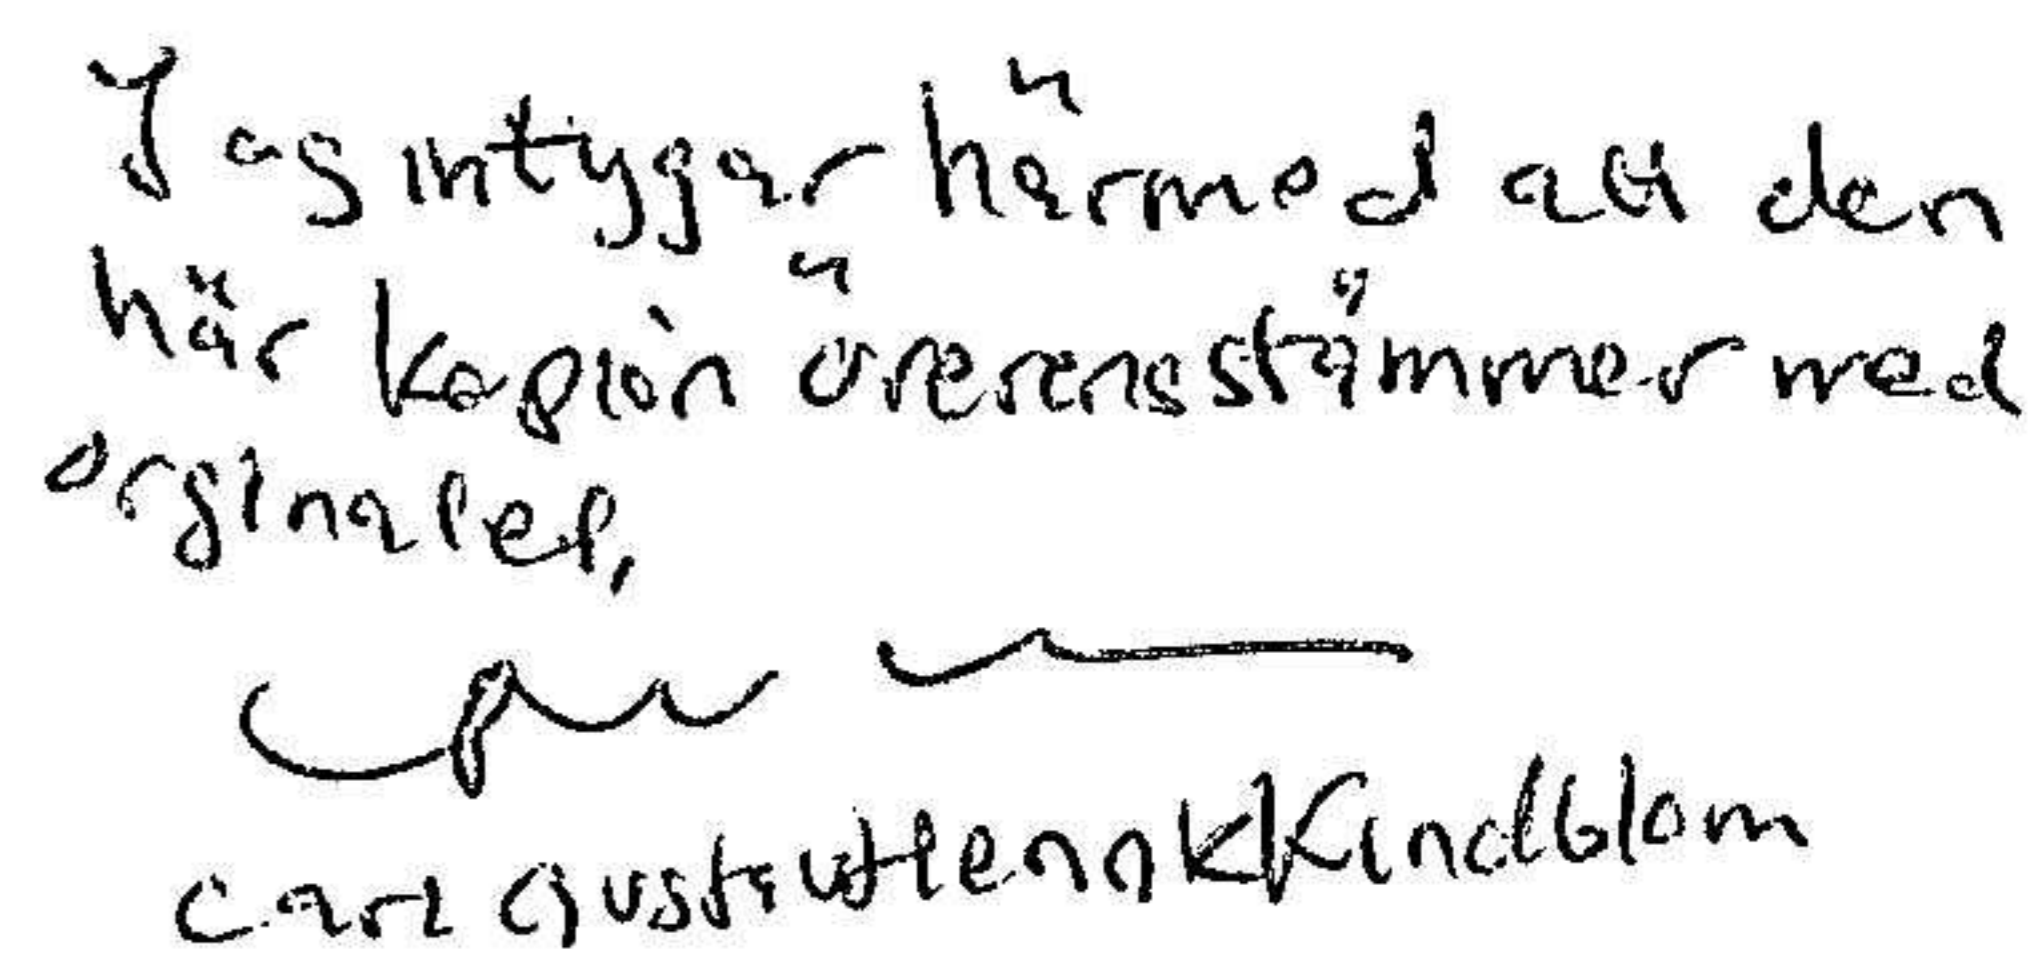 Jag intygar härmed att den
här kopiön överensstämmer med
orginalet,
Carl Gustav Henrik Kindblom